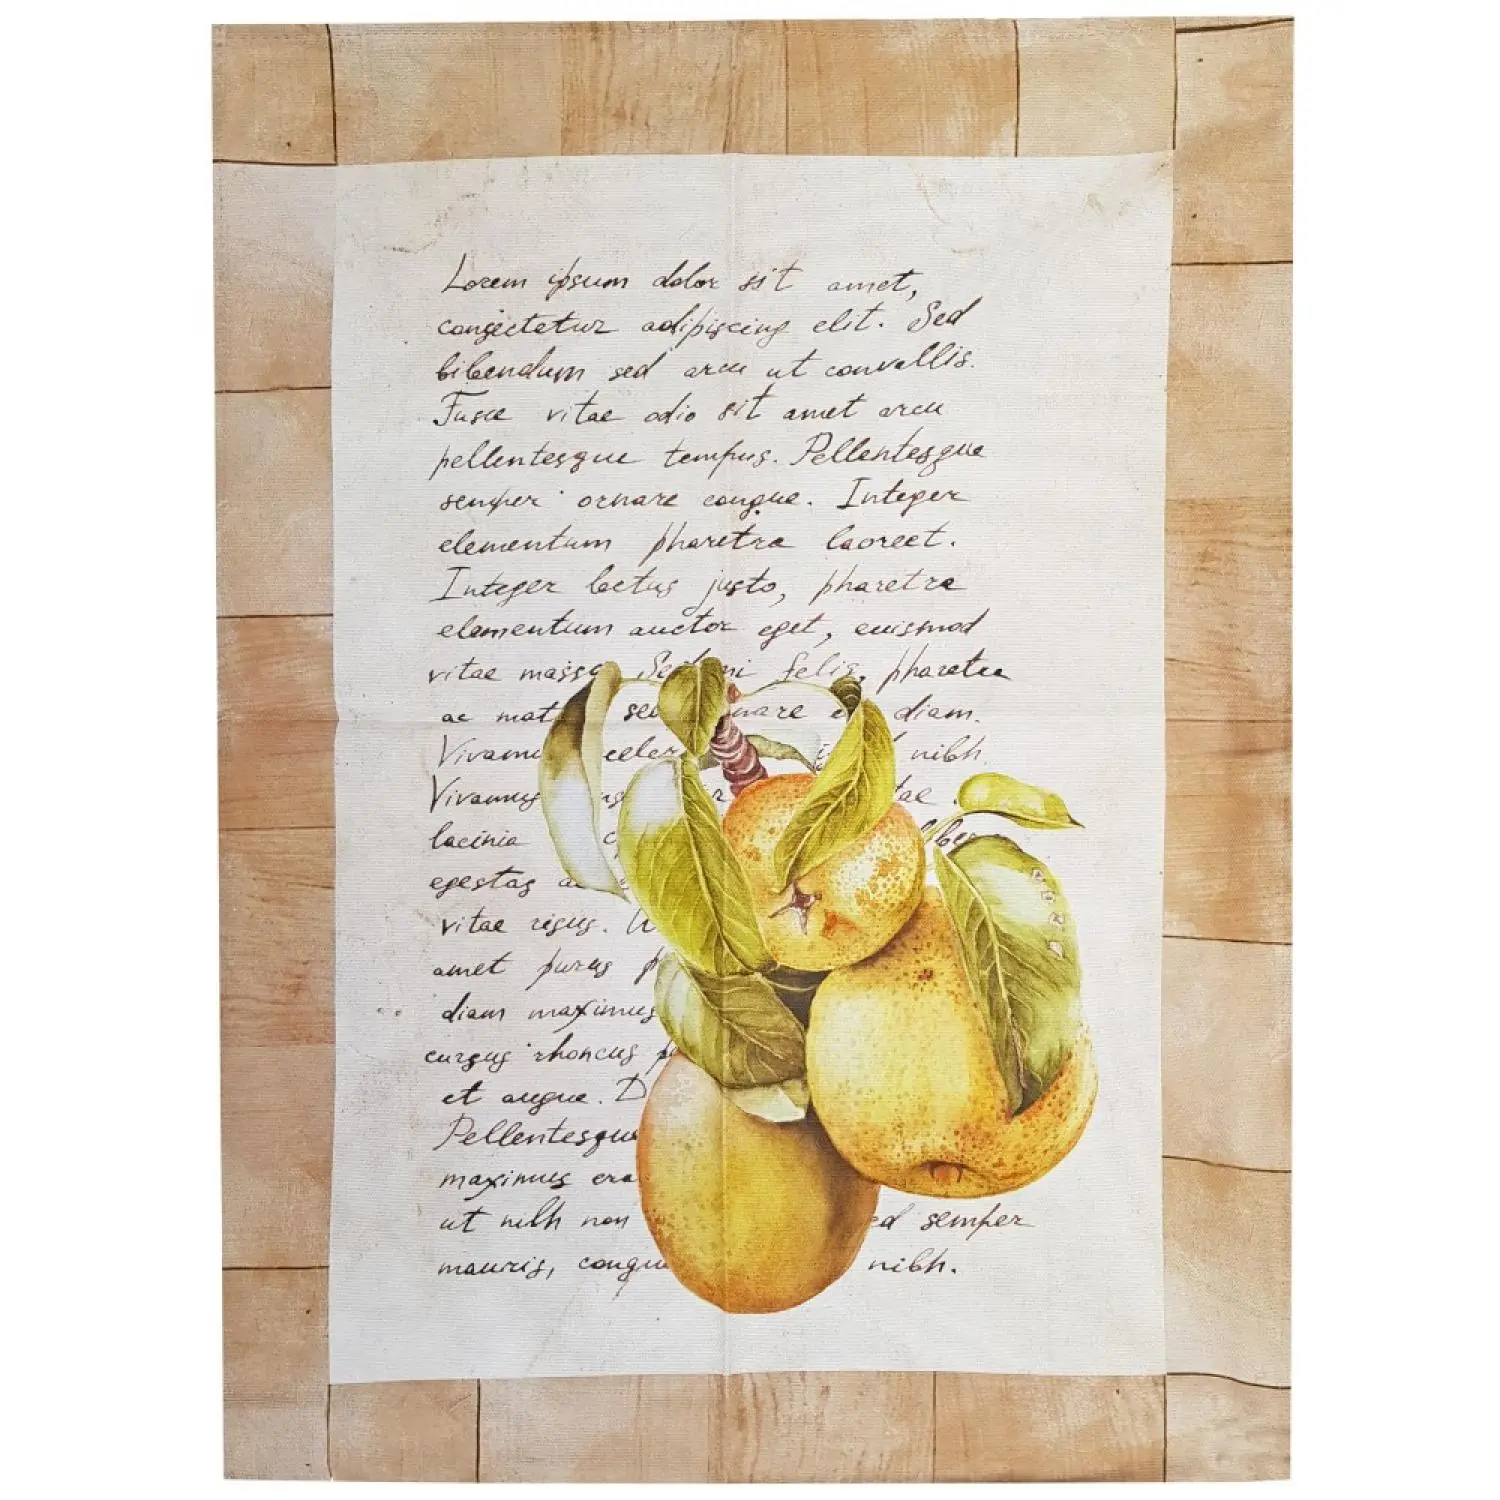 Lorem ipsum dolor sit amet,
consectetur adipiscing elit. Sed
bibendum sed arcu ut convallis.
Fusce vitae odio sit amet arcu
pellentesque tempus. Pellentesque
semper ornare congue. Integer
elementum pharetra laoreet.
Integer lectus justo, pharetra
elementum auctor eget, euismod
vitae massa felis, pharetra
ac diam.
nibh.
Vivamus
lacinia
egestas
vitae risus.
amet purus
diam maximus
cursus rhoncus
et augue. D
Pellentesque
maximus
ut nibh non semper
mauris, nibh.